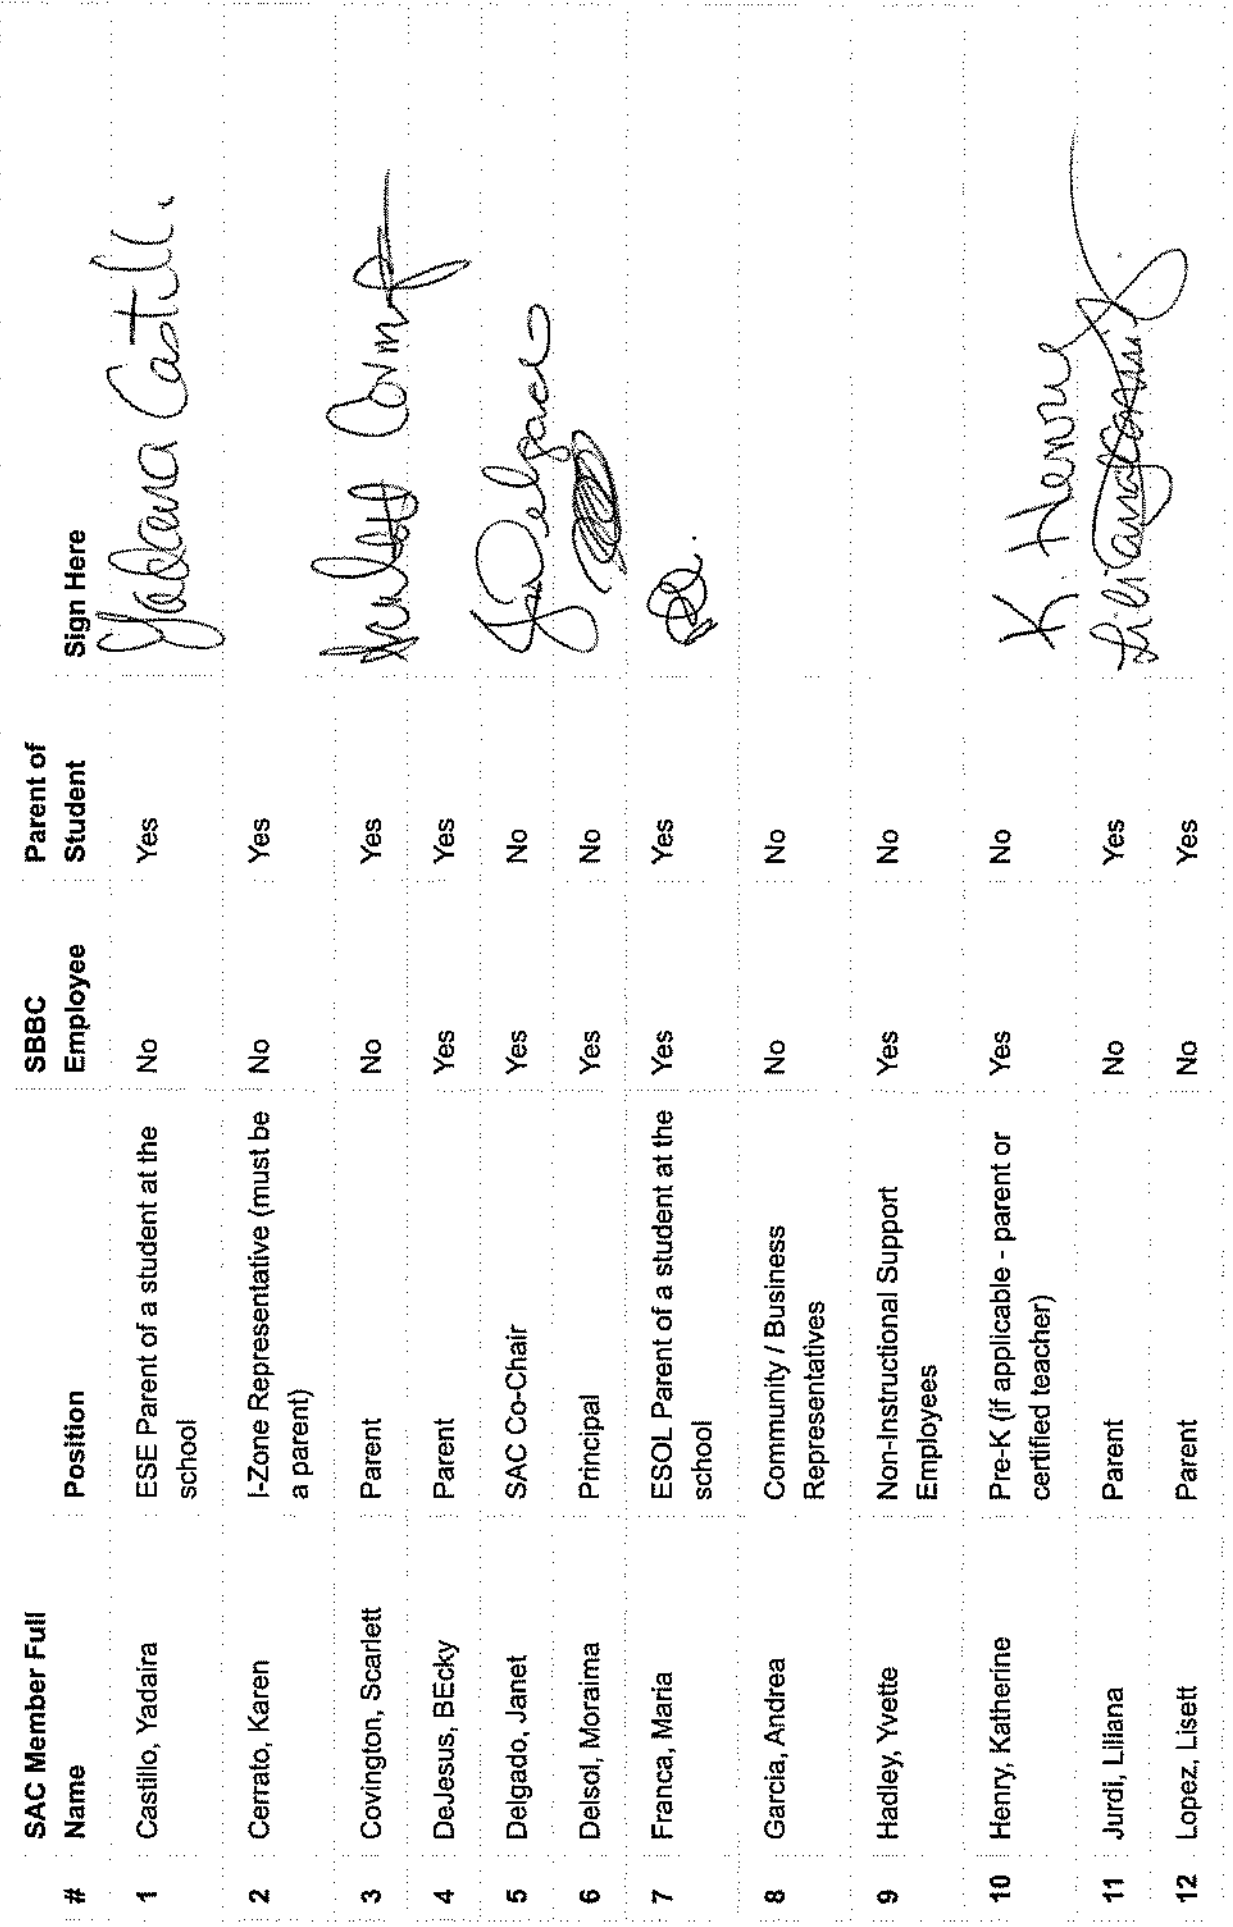 SAC Member Full SBBC Parent of
# Name Position Employee Student Sign Here
1 Castillo, Yadaira ESE Parent of a student at the No Yes Yadaira Castillo
school
2 Cerrato, Karen I-Zone Representative (must be No Yes
a parent)
3 Covington, Scarlett Parent No Yes
4 DeJesus, BEcky Parent Yes Yes
5 Delgado, Janet SAC Co-Chair Yes No JDelgado
6 Delsol, Moraima Principal Yes No
7 Franca, Maria ESOL Parent of a student at the Yes Yes
school
8 Garcia, Andrea Community / Business No No
Representatives
9 Hadley, Yvette Non-Instructional Support Yes No
Employees
10 Henry, Katherine Pre-K (if applicable - parent or Yes No K Henry
certified teacher)
11 Jurdi, Liliana Parent No Yes
12 Lopez, Lisett Parent No Yes